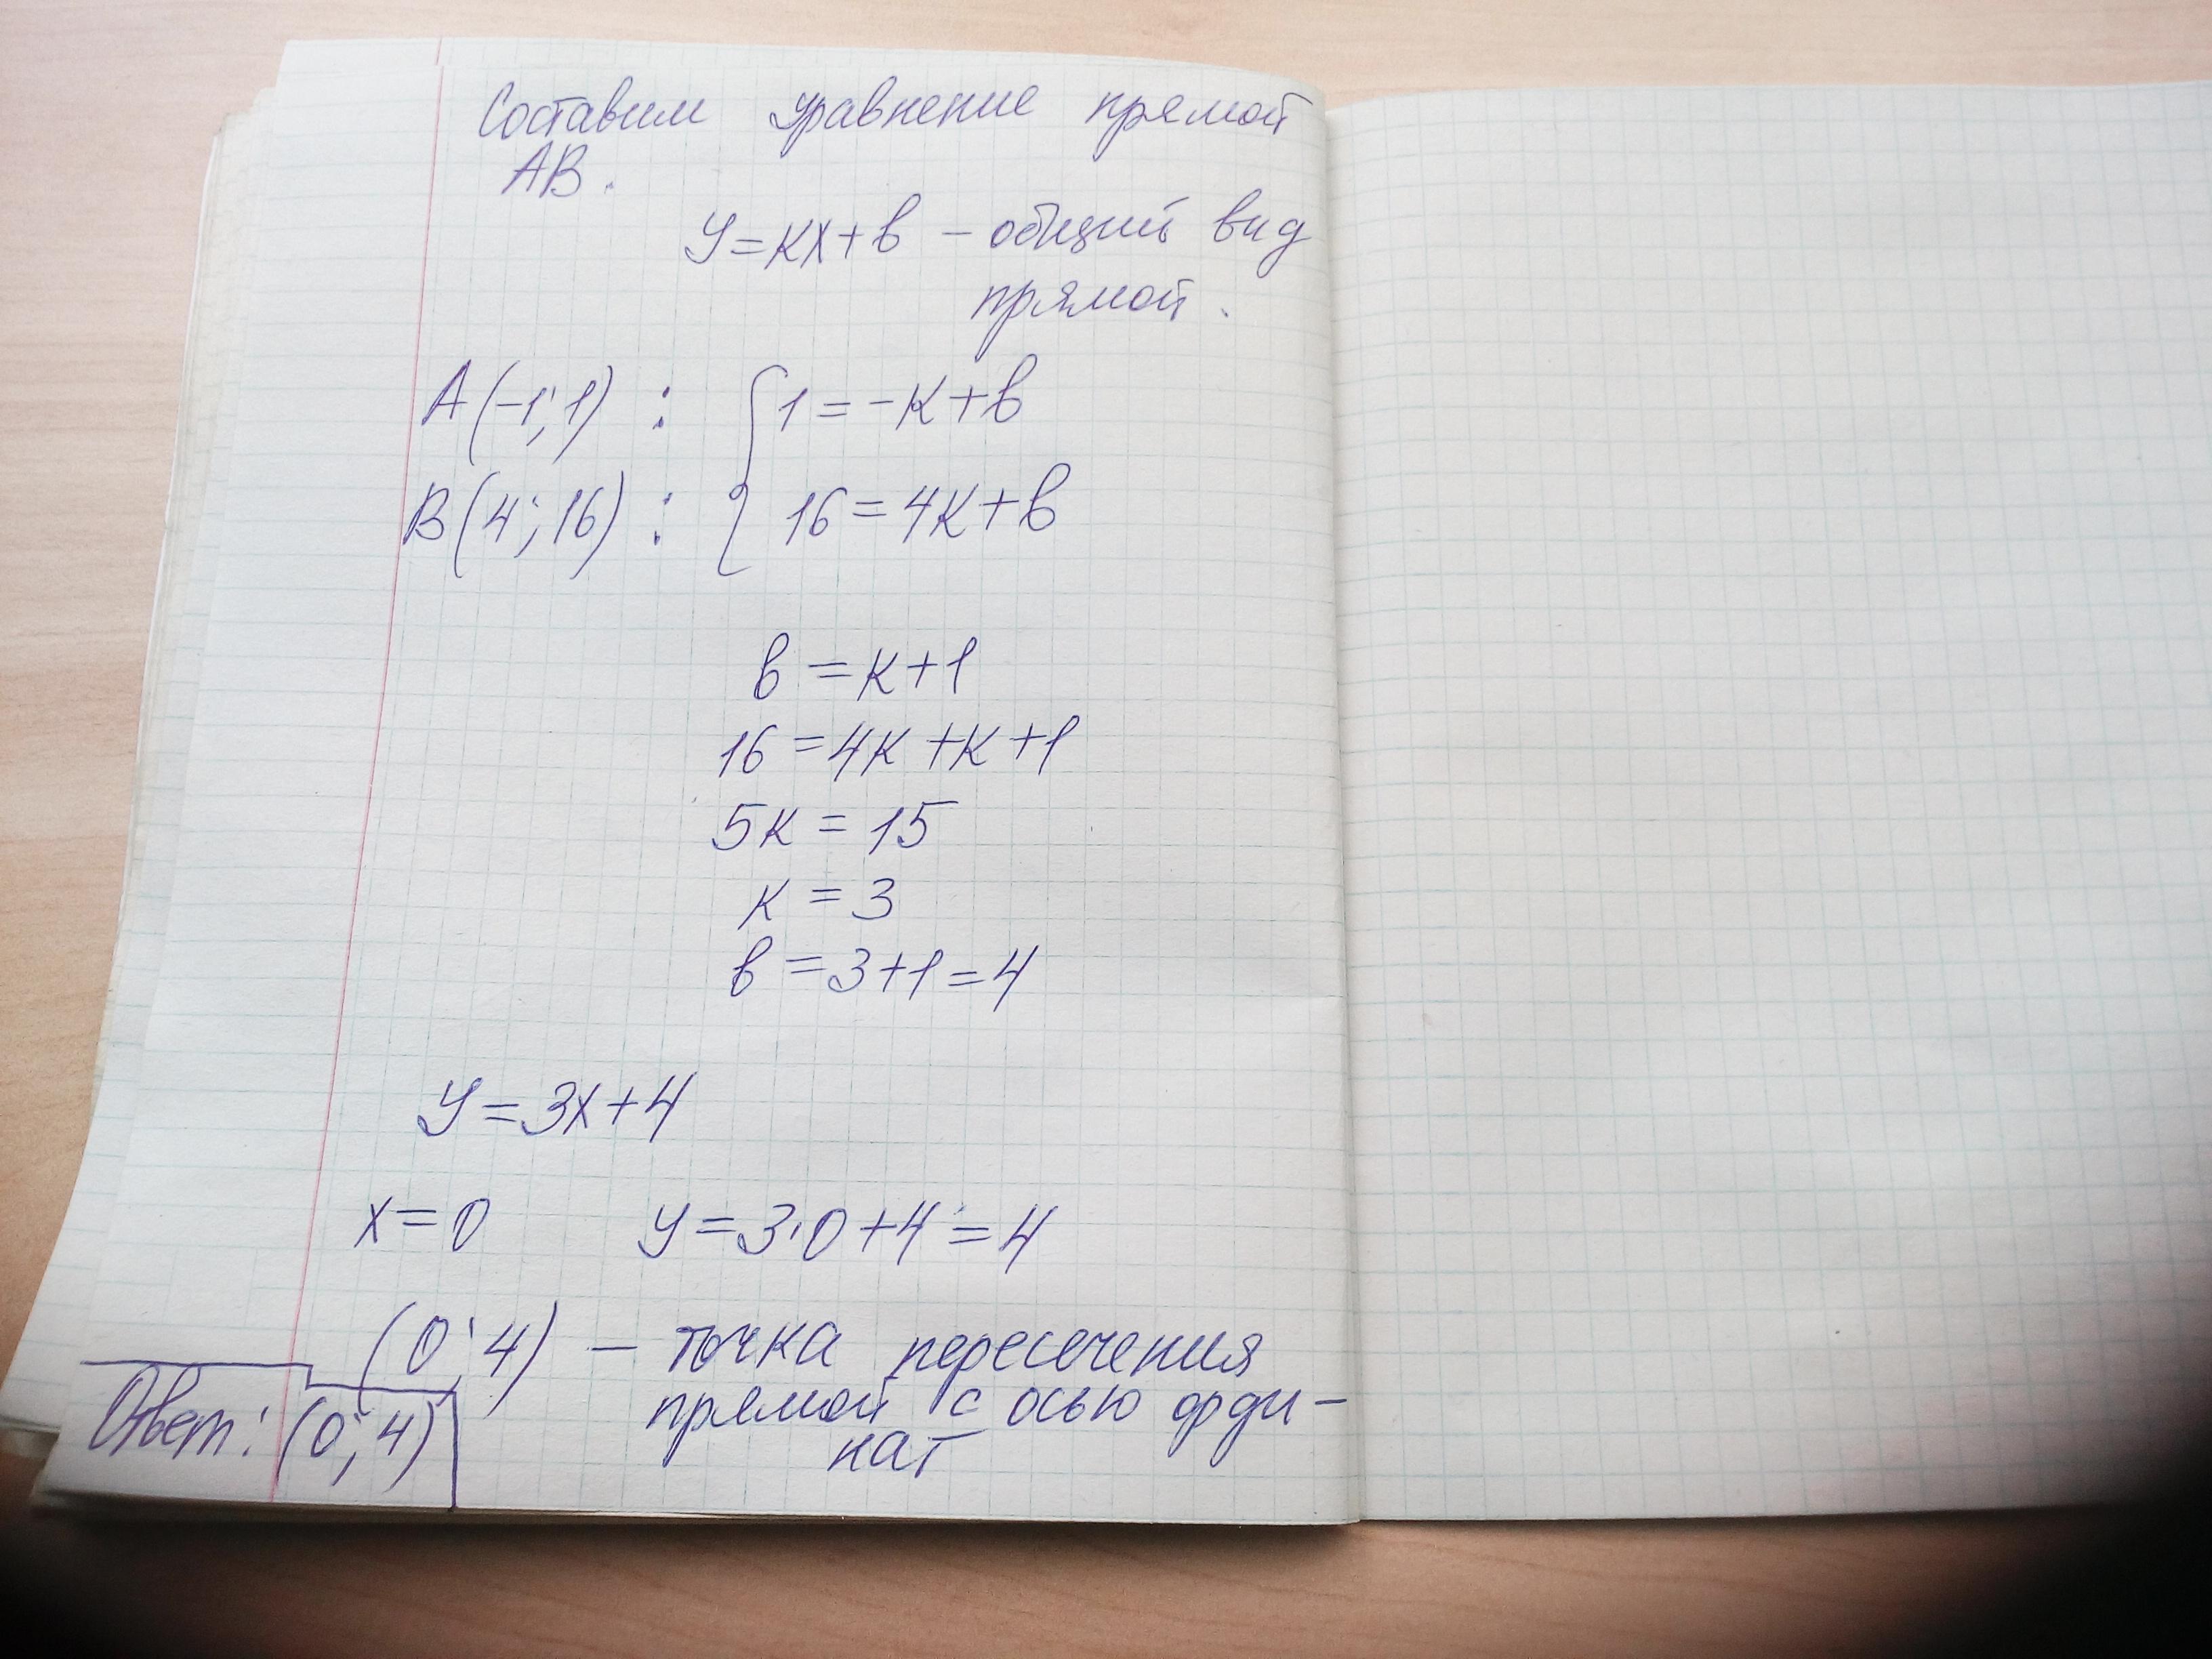 Составим уравнение прямой
АВ.
у=кх+в - общий вид
прямой.
А(-1;1) : { 1=-к+в
В(4;16) : { 16=4к+в
в=к+1
16=4к+к+1
5к=15
к=3
в=3+1=4
у=3х+4
х=0 у=3·0+4=4
(0;4) - точка пересечения
прямой с осью орди-
нат
Ответ: (0;4)